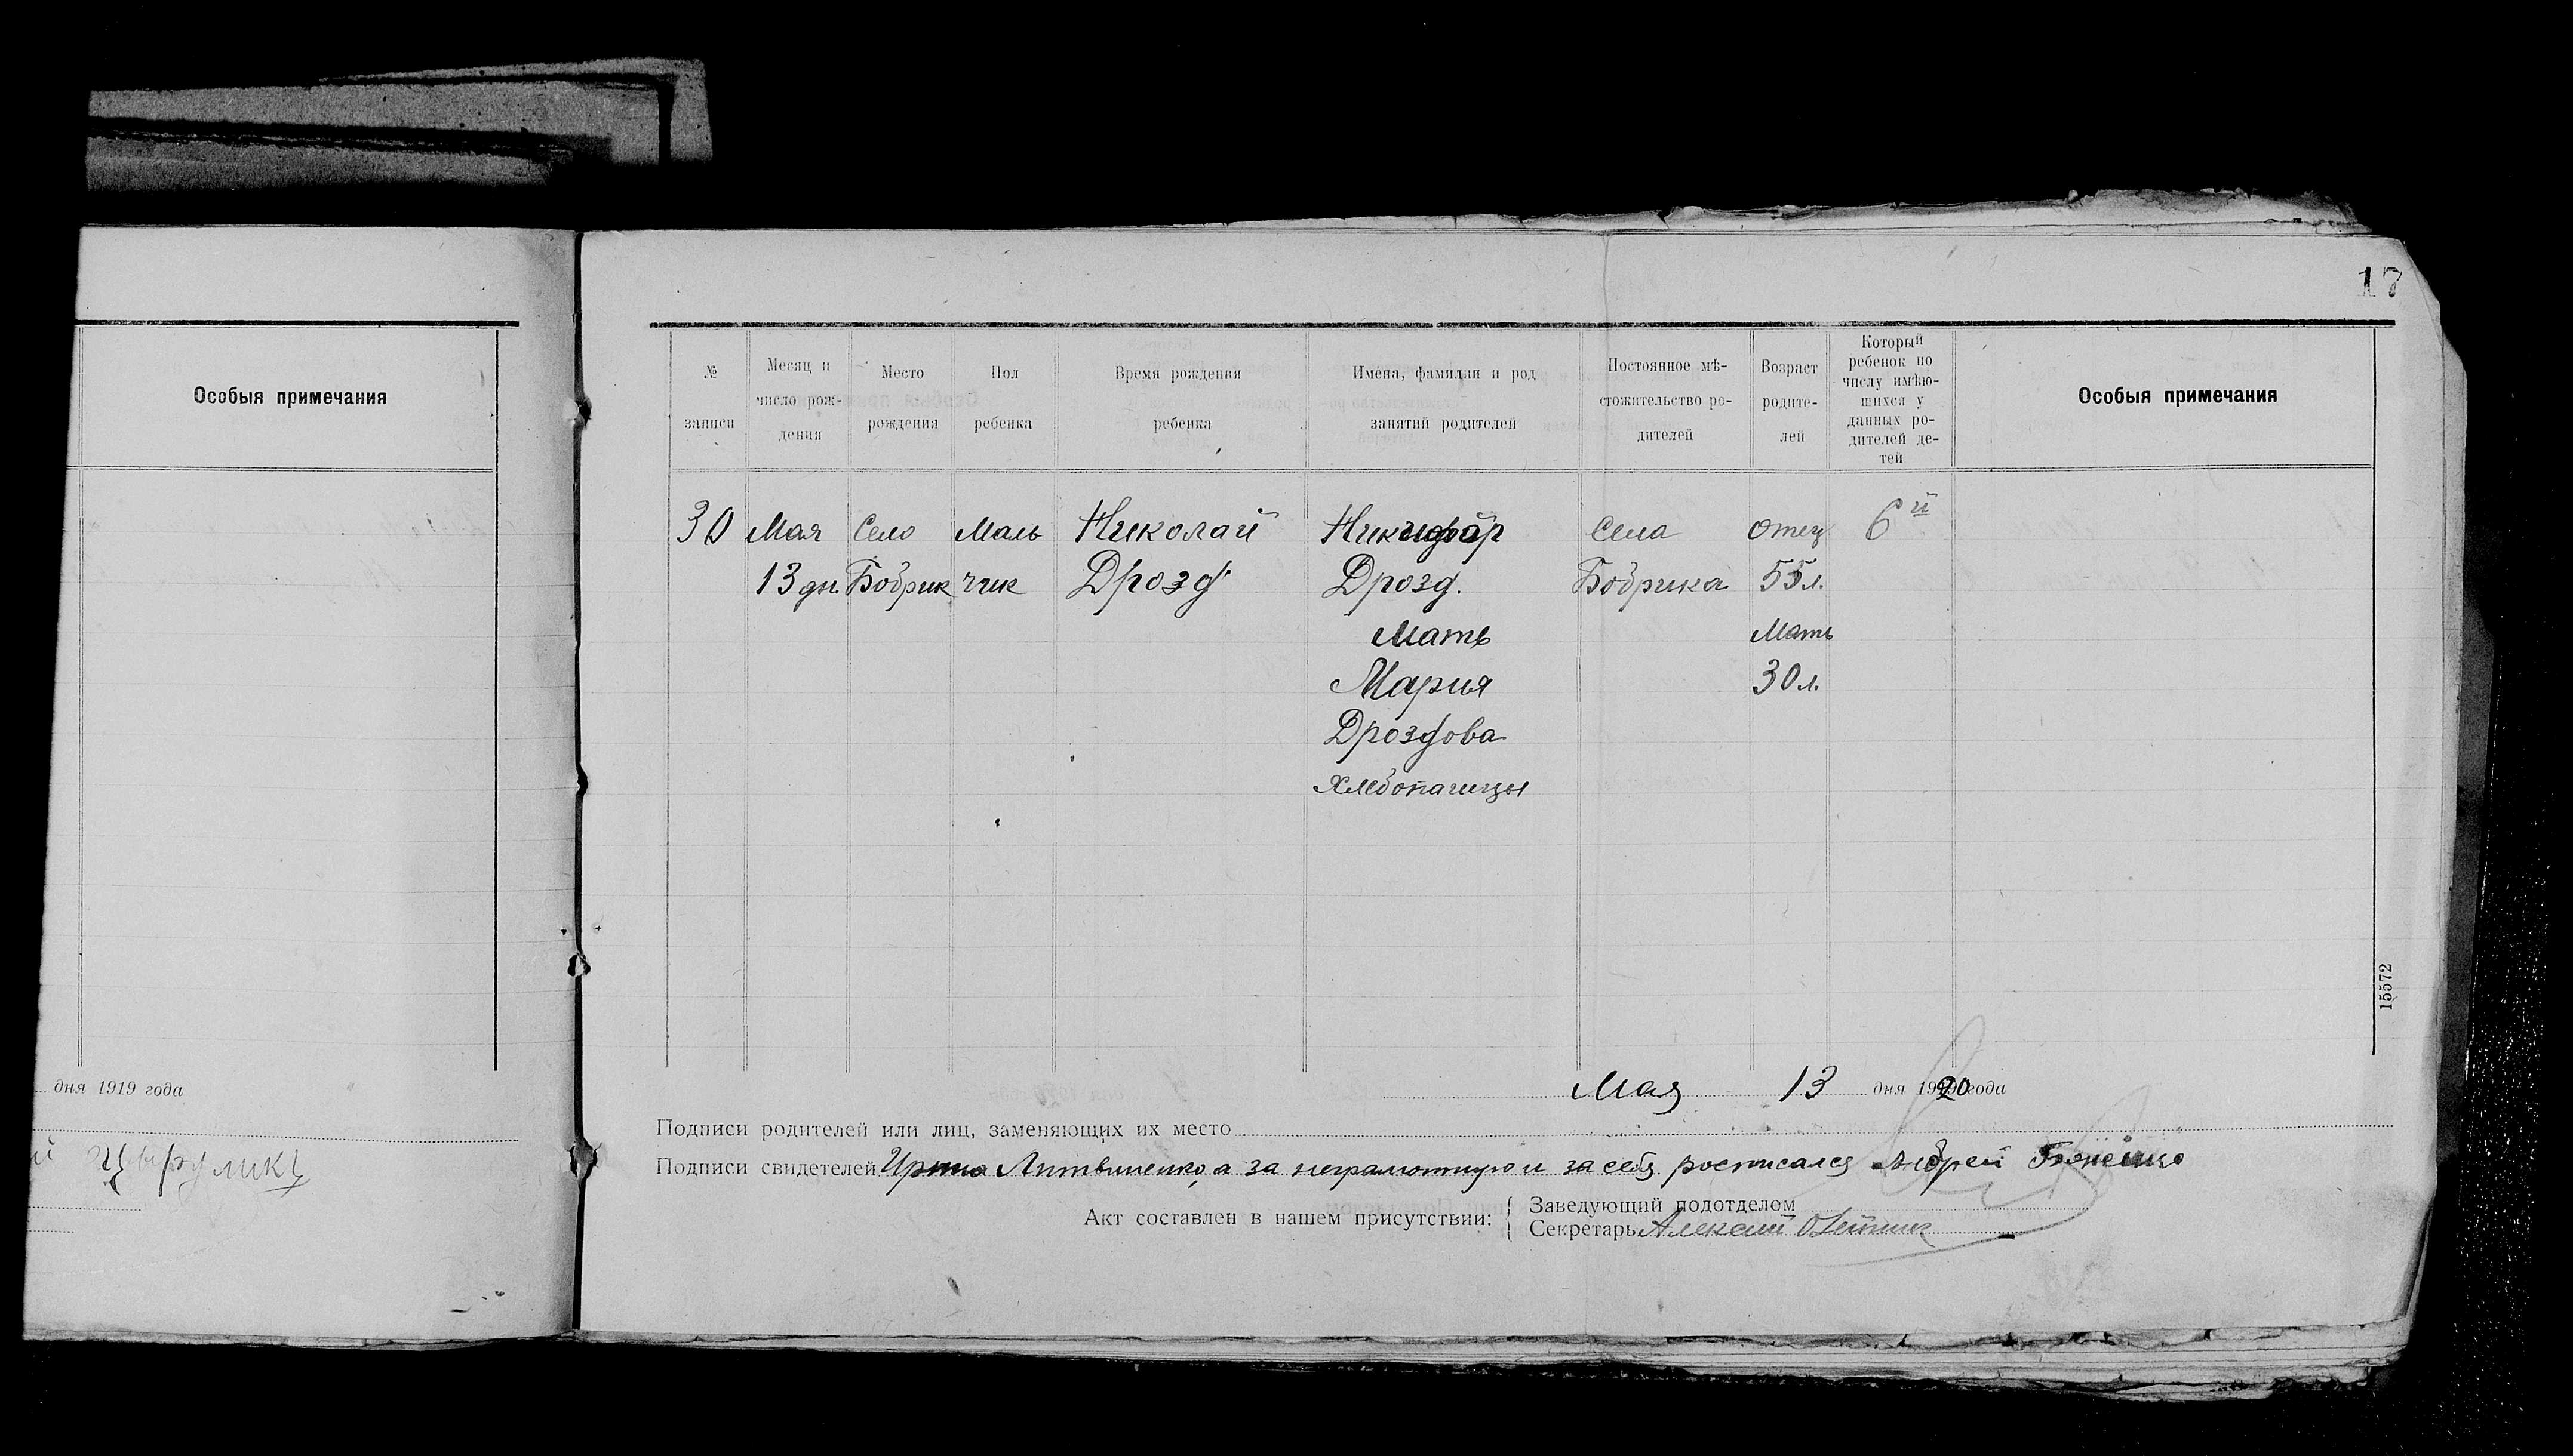 17
Особыя примечания
№ записи
Месяц и число рож-дения
Место рождения
Пол ребенка
Время рождения ребенка
Имена, фамилии и род занятий родителей
Постоянное мѣ-стожительство ро-дителей
Возраст родите-лей
Который ребенок по числу имѣю-щихся у данных ро-дителей де-тей
Особыя примечания
30 Мая Село Маль Николай Никифор Села отец 6й
13 дн. Бобрик чик Дрозд Дрозд. Бобрика 55 л.
Мать Мать
Мария 30 л.
Дроздова
Хлебопашцы
15572
дня 1919 года
Мая 13 дня 1920 года
Подписи родителей или лиц, заменяющих их место
Подписи свидетелей Ирина Литвиненко, а за неграмотную и за себя росписался Андрей
Акт составлен в нашем присутствии:
Заведующий подотделом
Секретарь Алексей